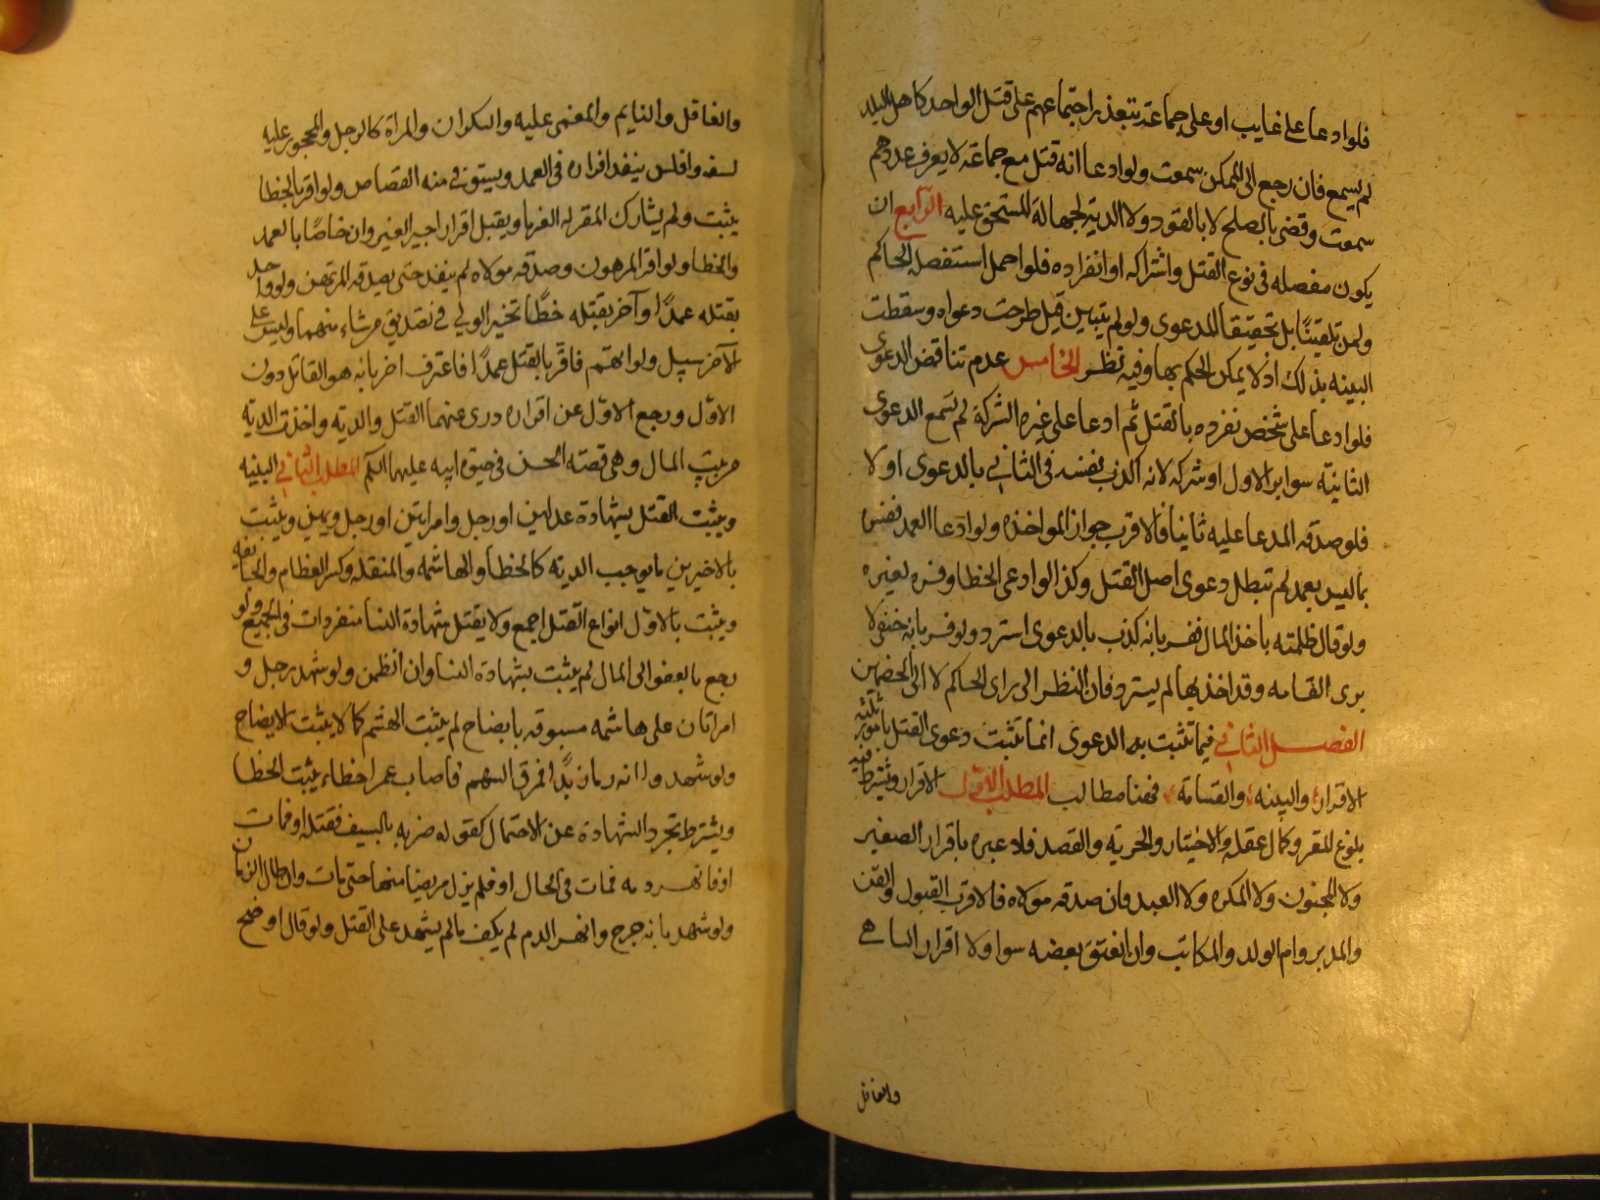 فلو ادعا على غايب او على جماعة يتعذر اجتماعهم على قتل الواحد كاهل البلد
لم يسمع فان رجع الى الممكن سمعت ولو ادعا انه قتل مع جماعة لا يعرف عددهم
سمعت وقضى بالصلح لا بالقود ولا الدية لجهالة المستحق عليه الرابع ان
يكون مفصله فى نوع القتل واشتراكه او انفراده فلو اجمل استفصله الحاكم
وليس تلقينًا بل تحقيقا للدعوى ولو لم يتبين قيل طرحت دعواه وسقطت
البينه بذلك اذ لا يمكن الحكم بها وفيه نظر الخامس عدم تناقض الدعوى
فلو ادعا على شخص تفرده بالقتل ثم ادعا على غيره الشركة لم تسمع الدعوى
الثانية سوا برا الاول او شركه لانه اكذب نفسه فى الثانى بالدعوى اولا
فلو صدقه المدعا عليه ثانيا فالاقرب جواز المواخذه ولو ادعا العمد ففسره
بما ليس بعمد لم تبطل دعوى اصل القتل وكذا لو ادعى الخطا وفسره بغيره
ولو قال ظلمته باخذ المال ففسر بانه كذب بالدعوى استرد ولو فسر بانه حنفى لا
يرى القسامه وقد اخذ بها لم يسترد فان النظر الى راى الحاكم لا الى الخصمين
الفصل الثانى فيما تثبت به الدعوى انما تثبت دعوى القتل بامور ثلثه
الاقرار والبينه والقسامة فههنا مطالب المطلب الاول الاقرار ويشترط فيه
بلوغ المقر وكمال عقله والاختيار والحرية والقصد فلا عبره باقرار الصغير
ولا المجنون ولا المكره ولا العبد فان صدقه مولاه فالاقرب القبول والقن
والمدبر وام الولد والمكاتب وان انعتق بعضه سوا ولا اقرار الساهى
والغافل
والغافل والنايم والمغمى عليه والسكران والمراة كالرجل والمحجور عليه
لسفه وافلس ينفذ اقراره فى العمد ويستوفى منه القصاص ولو اقر بالخطا
يثبت ولم يشارك المقر له الغرما ويقبل اقرار اجير الغير وان خاصًا بالعمد
والخطا ولو اقر المرهون وصدقه مولاه لم ينفذ حتى يصدقه المرتهن ولو واحد
بقتله عمدًا وآخر بقتله خطًا تخير الولي فى تصديق من شاء منهما وليس على
الآخر سبيل ولو اتهم فاقر بالقتل عمدًا فاعترف اخر بانه هو القاتل دون
الاول ورجع الاول عن اقراره درى عنهما القتل والدية واخذت الدية
من بيت المال وهى قصة الحسن فى حيوة ابيه عليهما السلم المطلب الثانى البينه
ويثبت القتل بشهادة عدلين او رجل وامراتين او رجل ويمين ويثبت
بالاخيرين ما يوجب الدية كالخطا والهاشمه والمنقله وكسر العظام والجايفه
ويثبت بالاول انواع القتل اجمع ولا يقبل شهادة النسا منفردات فى الجميع ولو
رجع بالعفو الى المال لم يثبت بشهادة النسا وان انظمن ولو شهد رجل و
امراتان على هاشمه مسبوقه بايضاح لم يثبت الهشم كما لا يثبت الايضاح
ولو شهدوا انه رمى زيدًا فمرق السهم فاصاب عمرا خطاء يثبت الخطا
ويشترط تجرد الشهادة عن الاحتمال كقوله ضربه بالسيف فقتله او فمات
او فانهر دمه فمات فى الحال او فلم يزل مريضا منها حتى مات وان طال الزمان
ولو شهد بانه جرح وانهر الدم لم يكف ما لم يشهد على القتل ولو قال اوضح